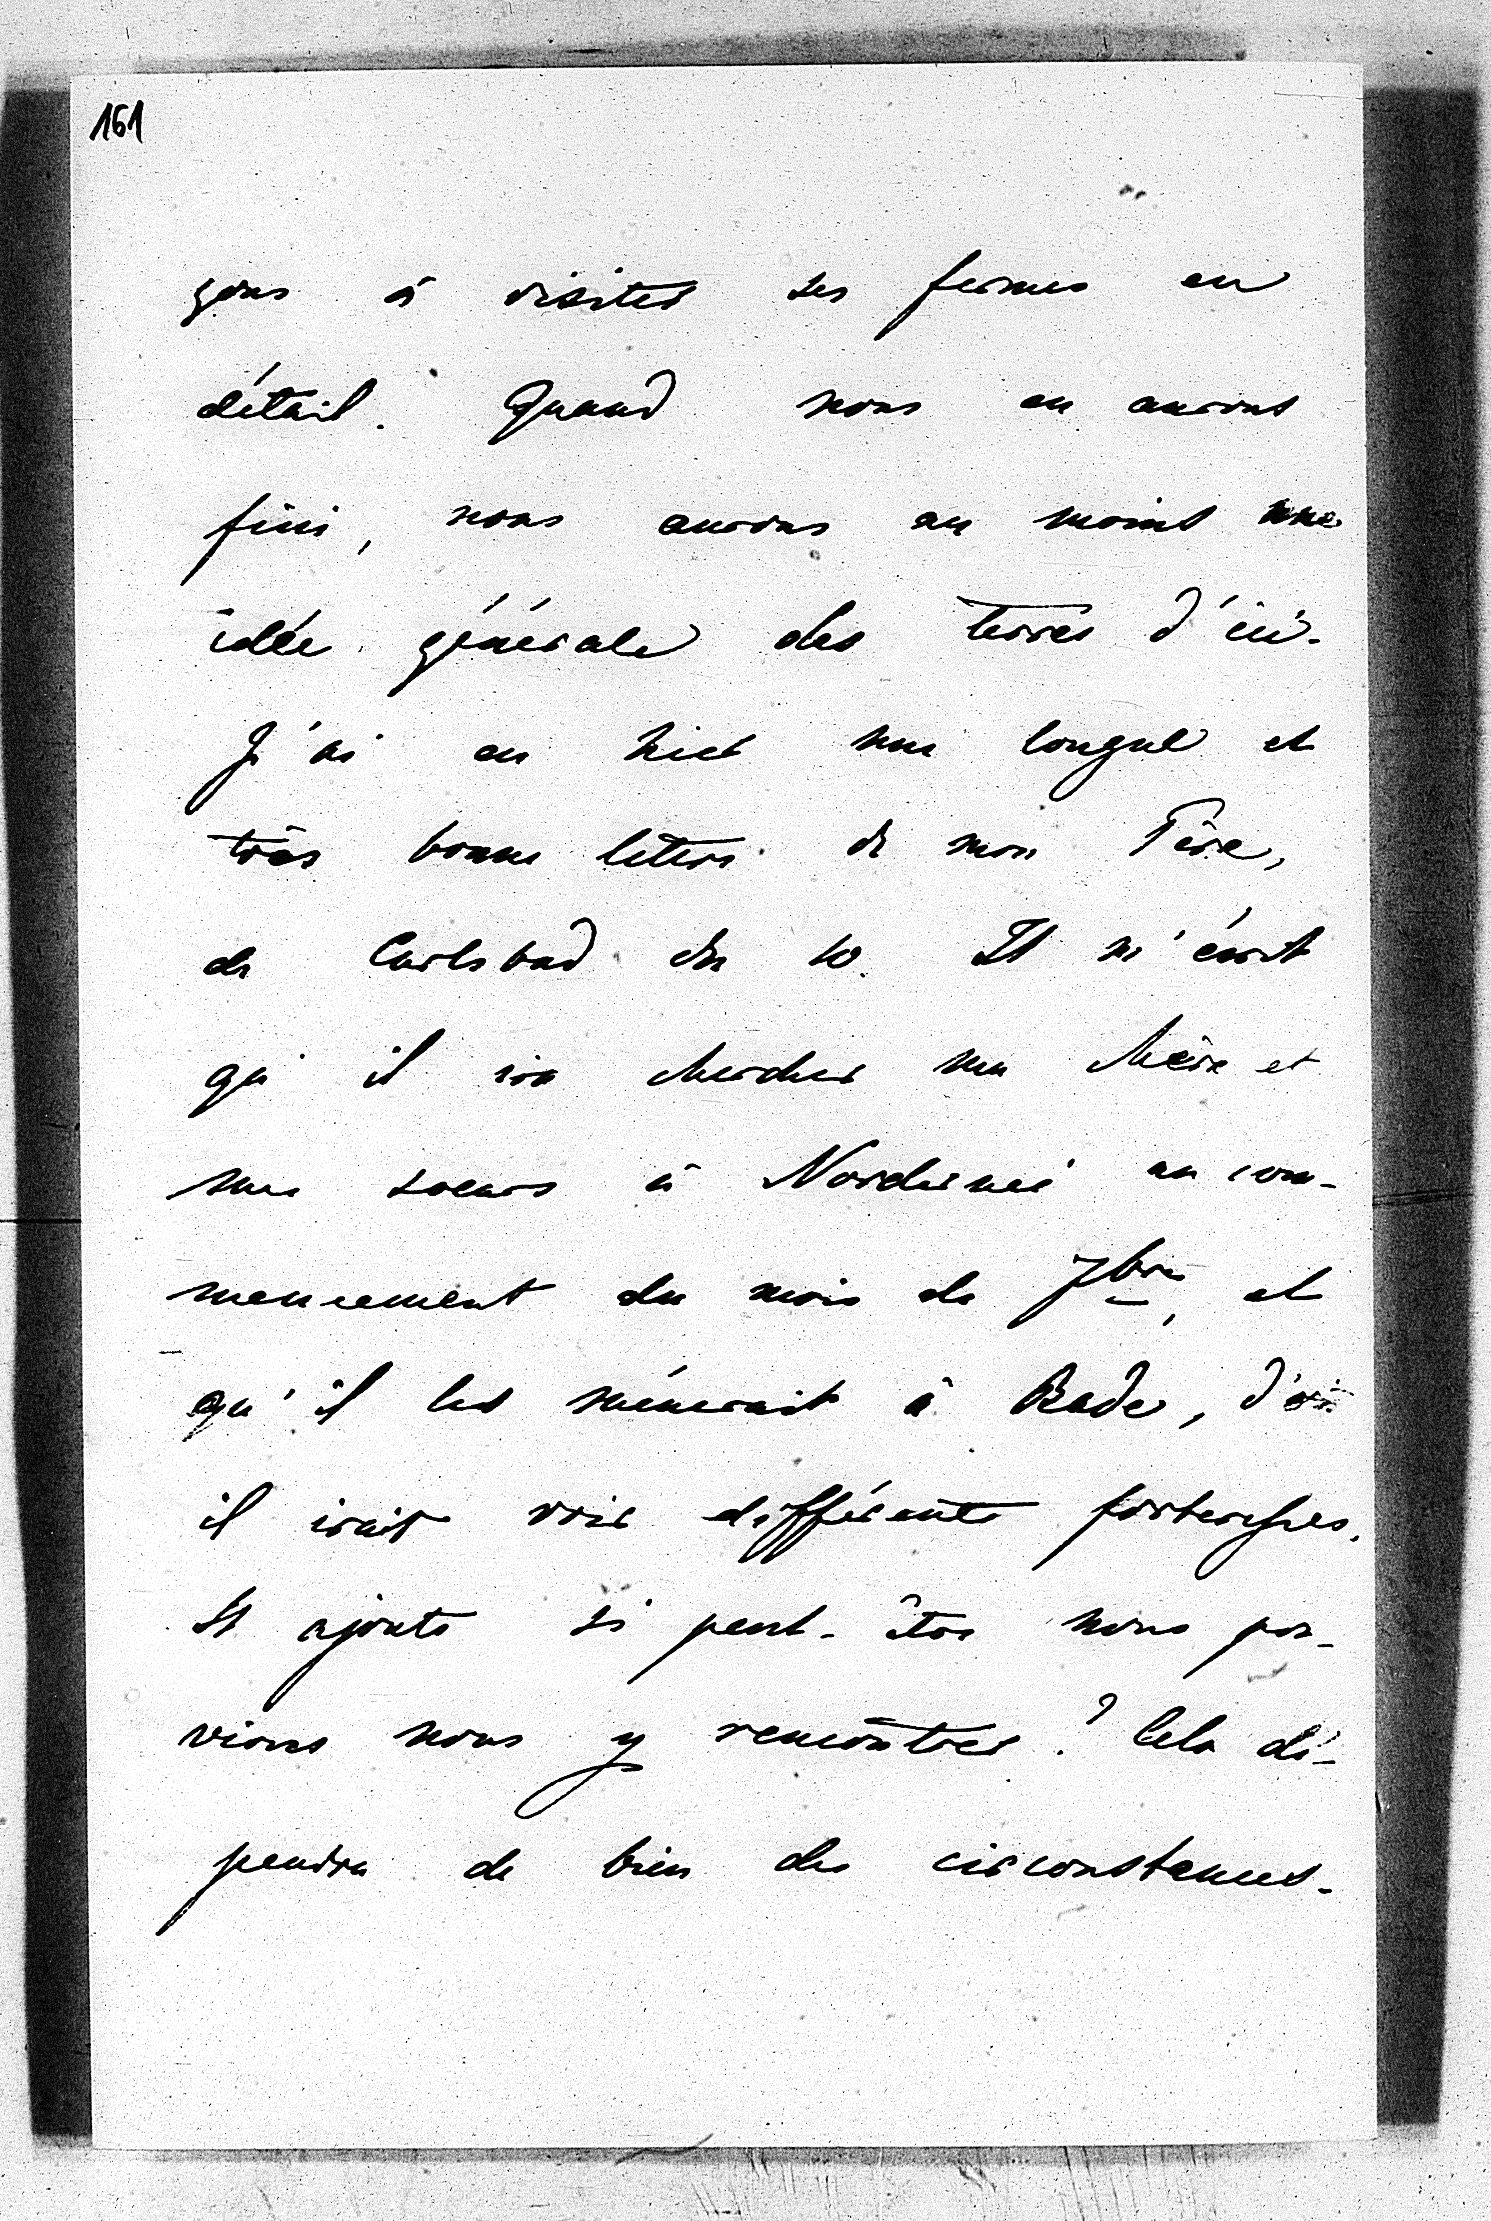 161
gons à visiter les fermes en
détail. Quand nous en aurons
fini, nous aurons au moins une
idée générale des terres d'ici.
J'ai eu hier une longue et
très bonne lettre de mon Père,
de Carlsbad du 10. Il m'écrit
qu'il ira chercher ma Mère et
mes soeurs à Nordernei au com-
mencement du mois de 7bre, et
qu'il les mènerait à Bade, d'où
il irait voir différentes forteresses.
Il ajoute si peut-être nous pou-
vions nous y rencontrer? Cela dé-
pendra de bien des circonstances.